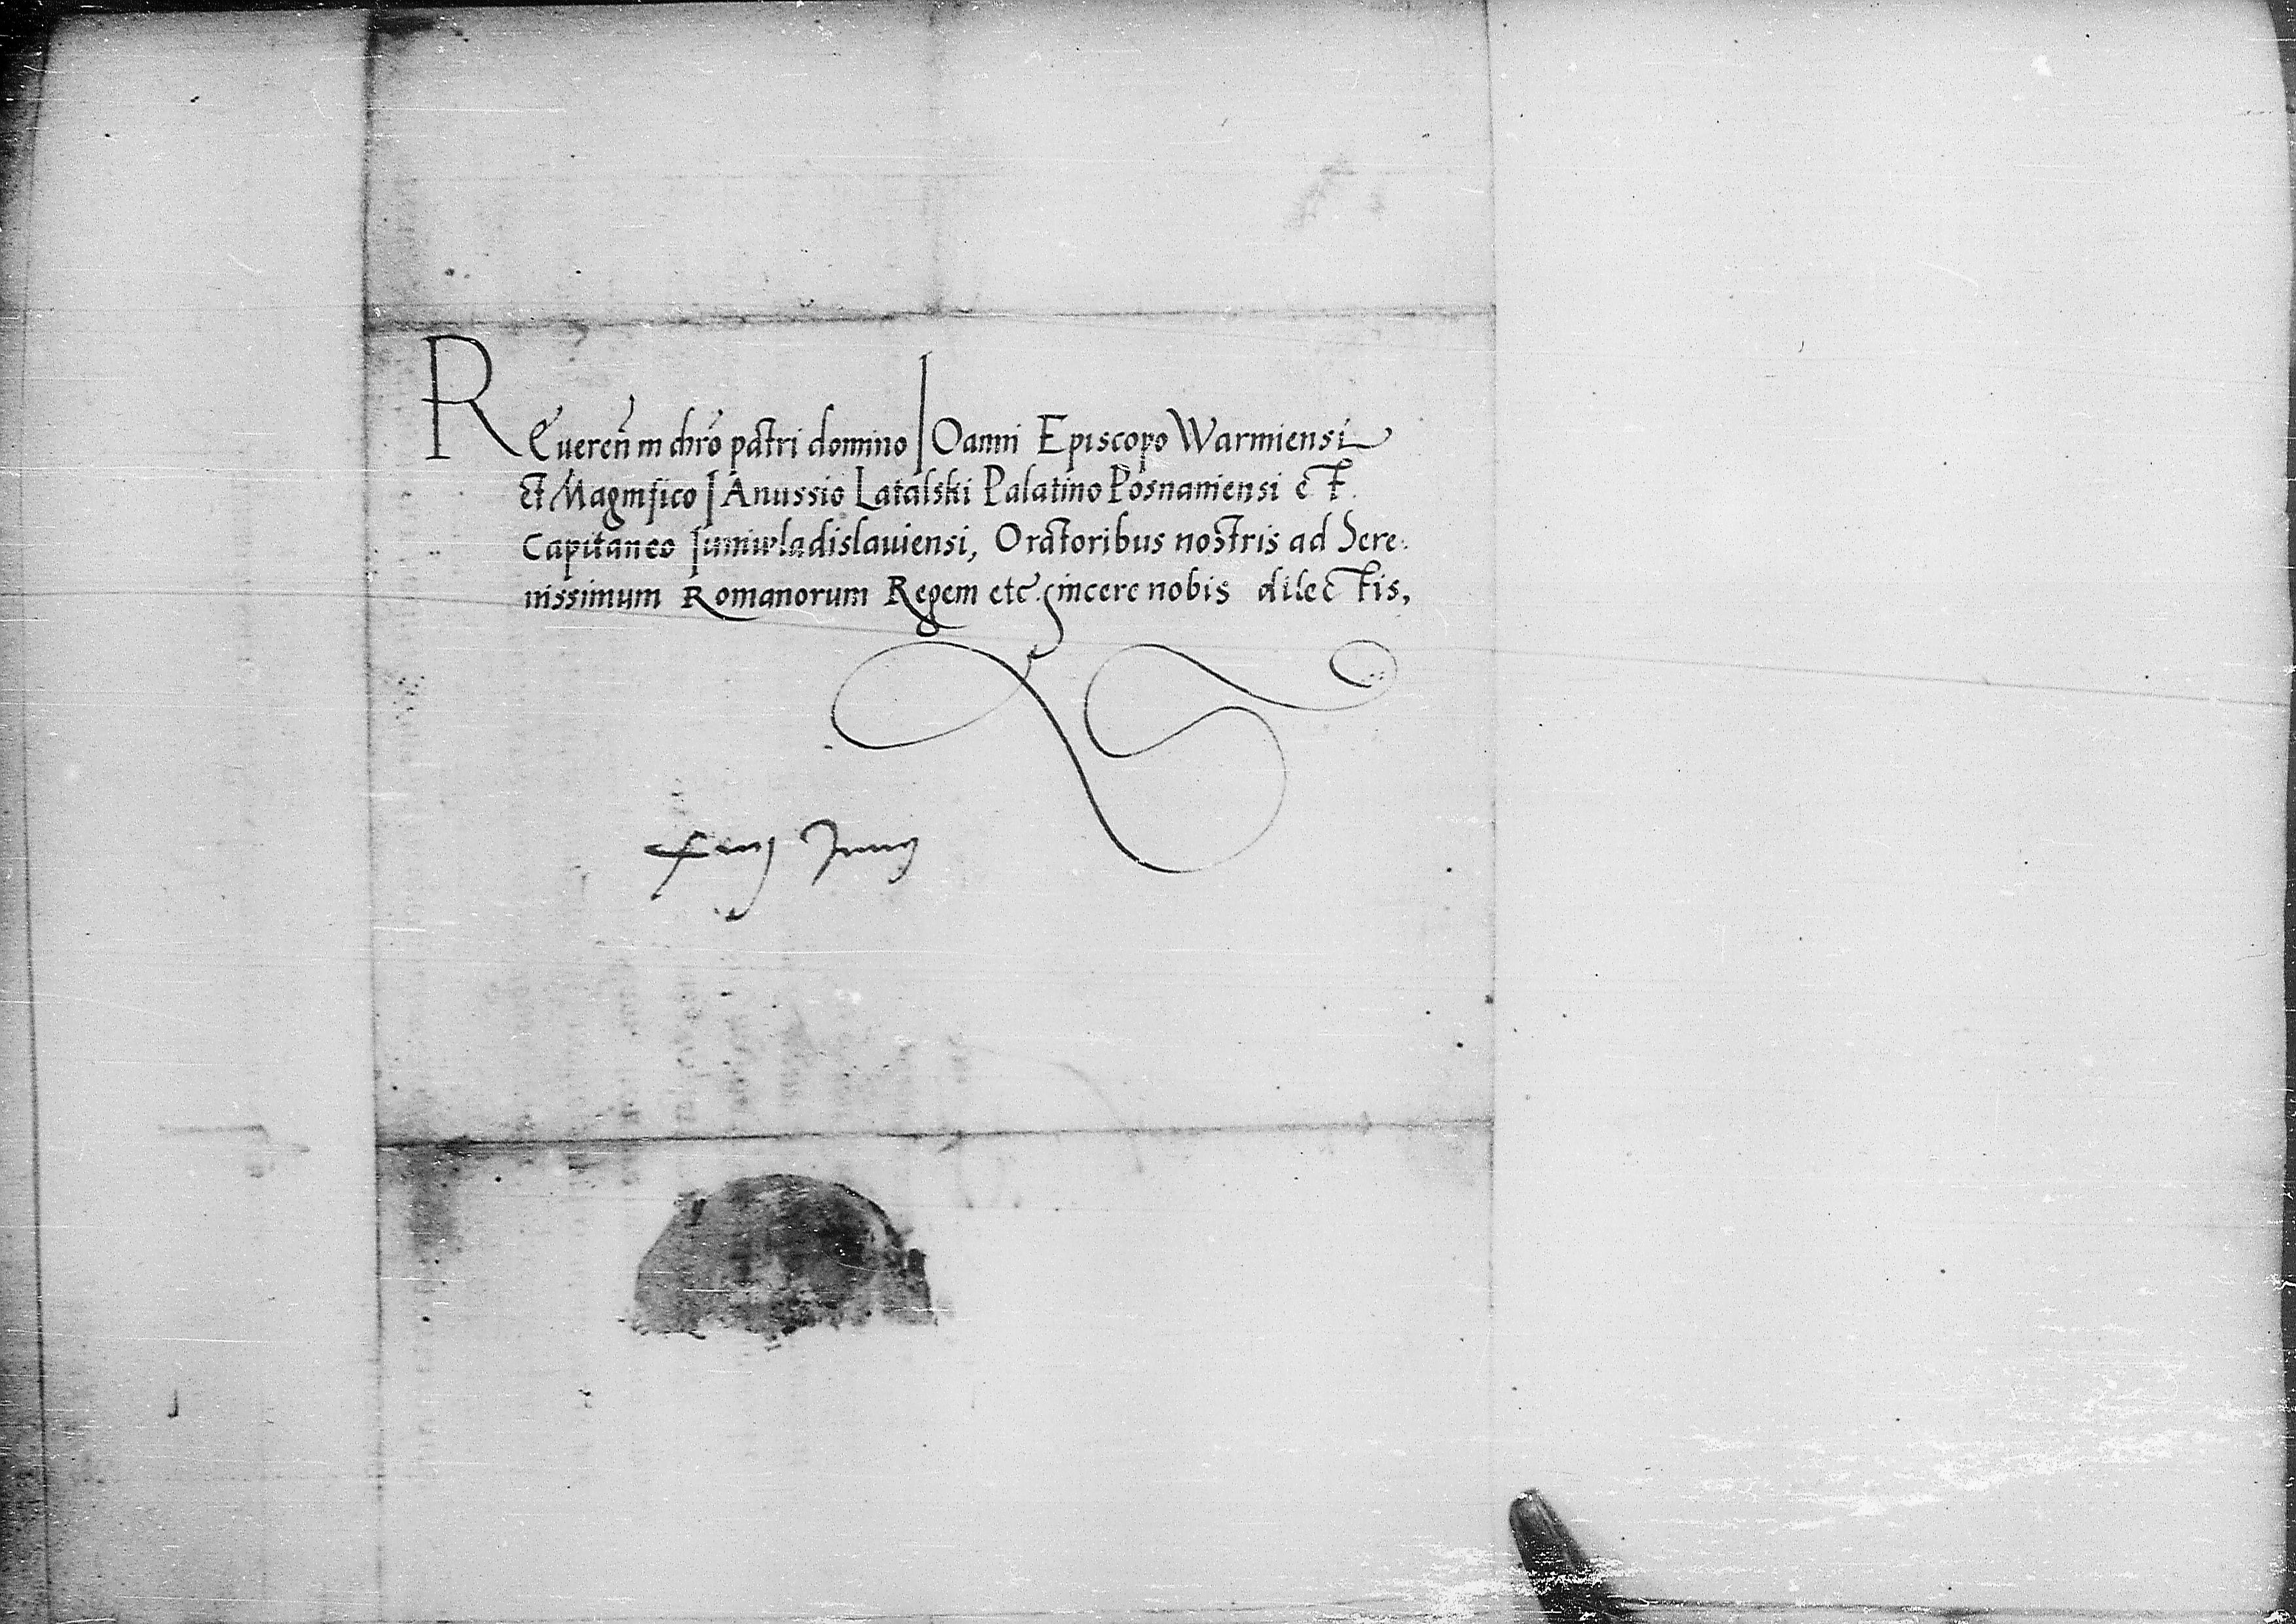 REuereñ in chrō patri domino IOanni Episcopo Warmiensi
Et Magnifico IAnussio Latalski Palatino Posnaniensi Et
Capitaneo Iuniwladislauiensi, Oratoribus nostris ad Sere-
nissimum Romanorum Regem etc̃ sincere nobis dilectis,